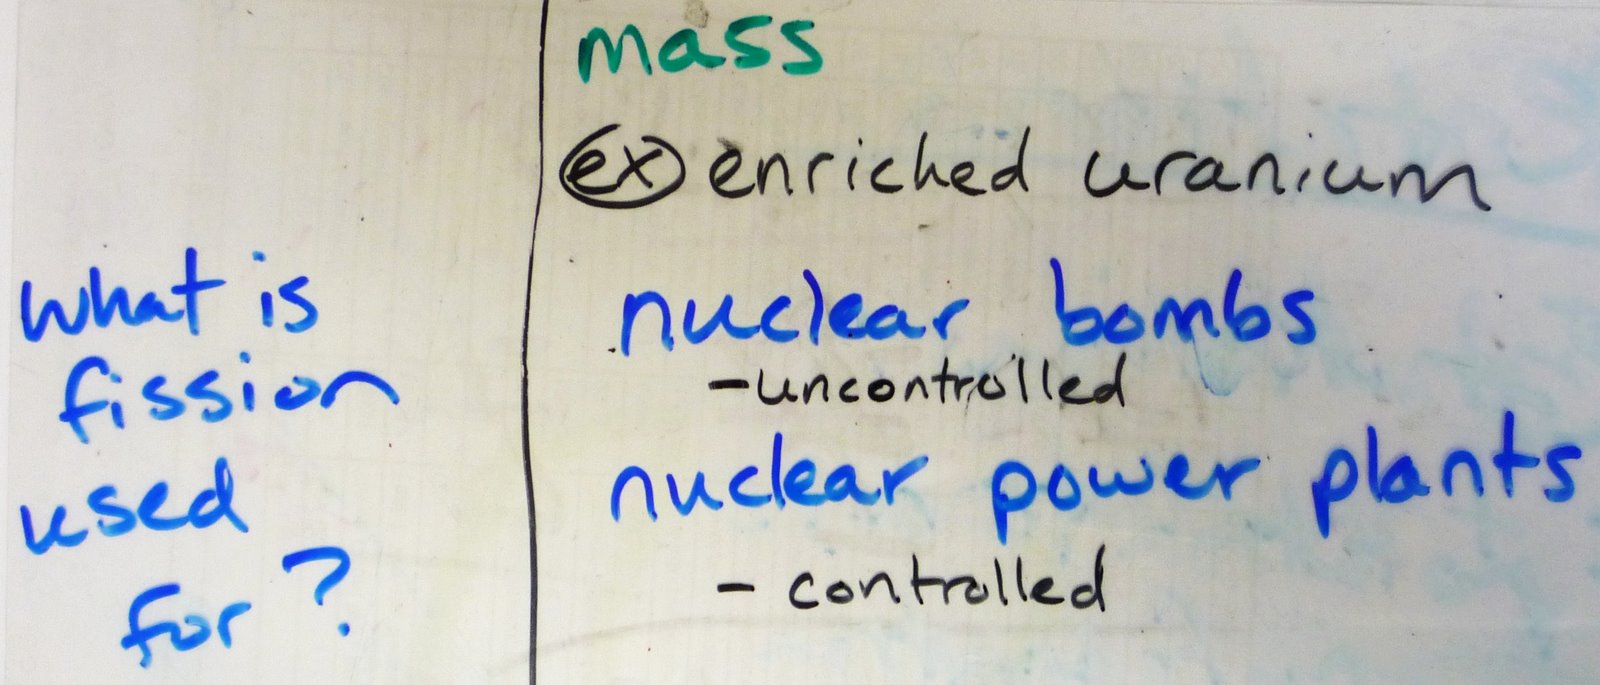 mass
ex enriched uranium
What is
fission
used
for?
nuclear bombs
-uncontrolled
nuclear power plants
- controlled